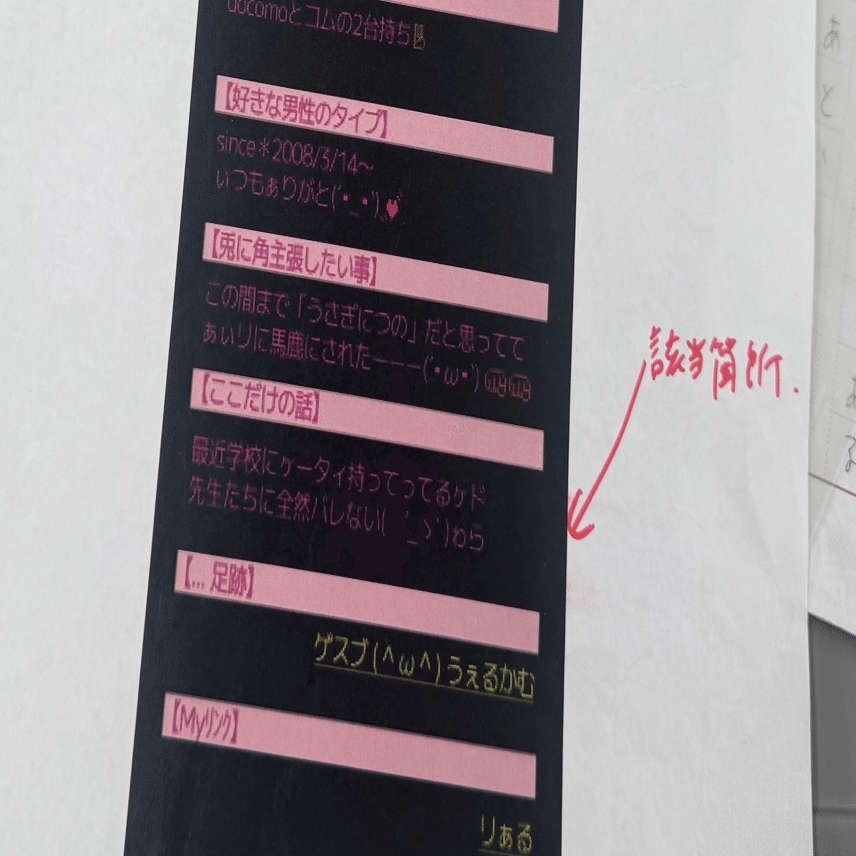 docomoとコムの2台持ち
【好きな男性のタイプ】
since＊2008/3/14〜
ぃつもぁりがと(´・_・`)
【兎に角主張したい事】
この間まで「うさぎにつの」だと思ってて
ぁぃりに馬鹿にされたーーー(´・ω・`)
【ここだけの話】
最近学校にヶータィ持ってってるヶド
先生たちに全然バレない( ´_ゝ`)ゎら
【... 足跡】
ゲスブ(^ω^)うぇるかむ
【Myﾘﾝｸ】
りぁる
該当箇所.
あ
と
い
る